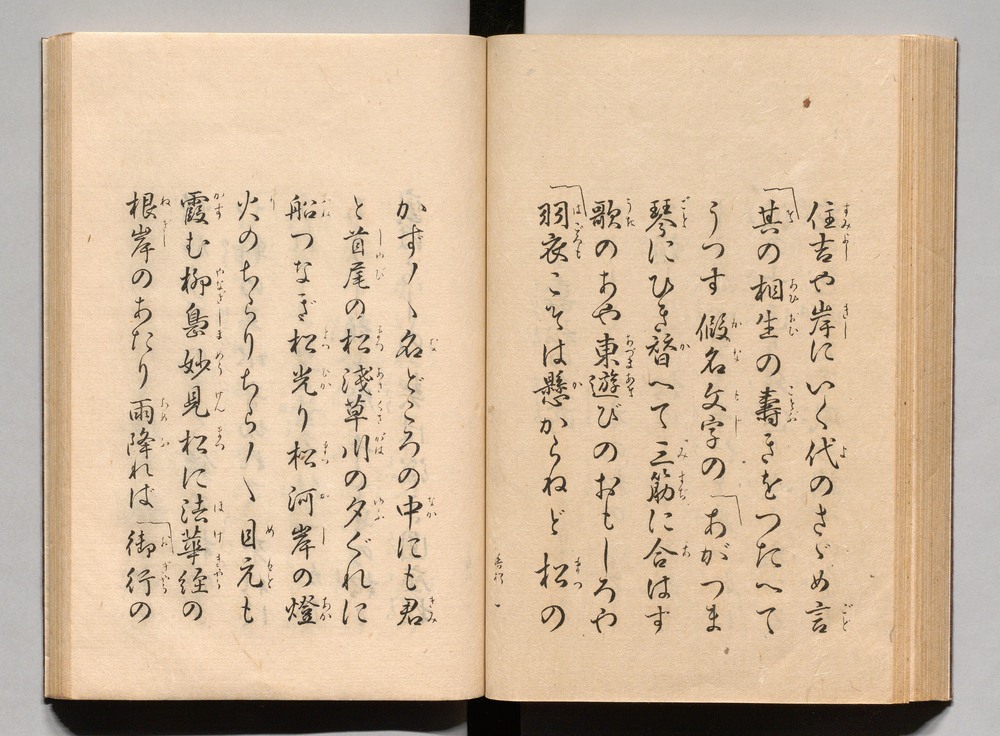 住吉や岸にいく代のさゞめ言
其の相生の壽きをつたへて
うつす假名文字の「あがつま
琴にひき替へて三筋に合はす
歌のあや東遊びのおもしろや
羽衣こそは懸からねど松の
かず〳〵名どころの中にも君
と首尾の松淺草川の夕ぐれに
船つなぎ松光り松河岸の燈
火のちらりちら〳〵目元も
霞む柳島妙見松に法華経の
根岸のあたり雨降れば「御行の